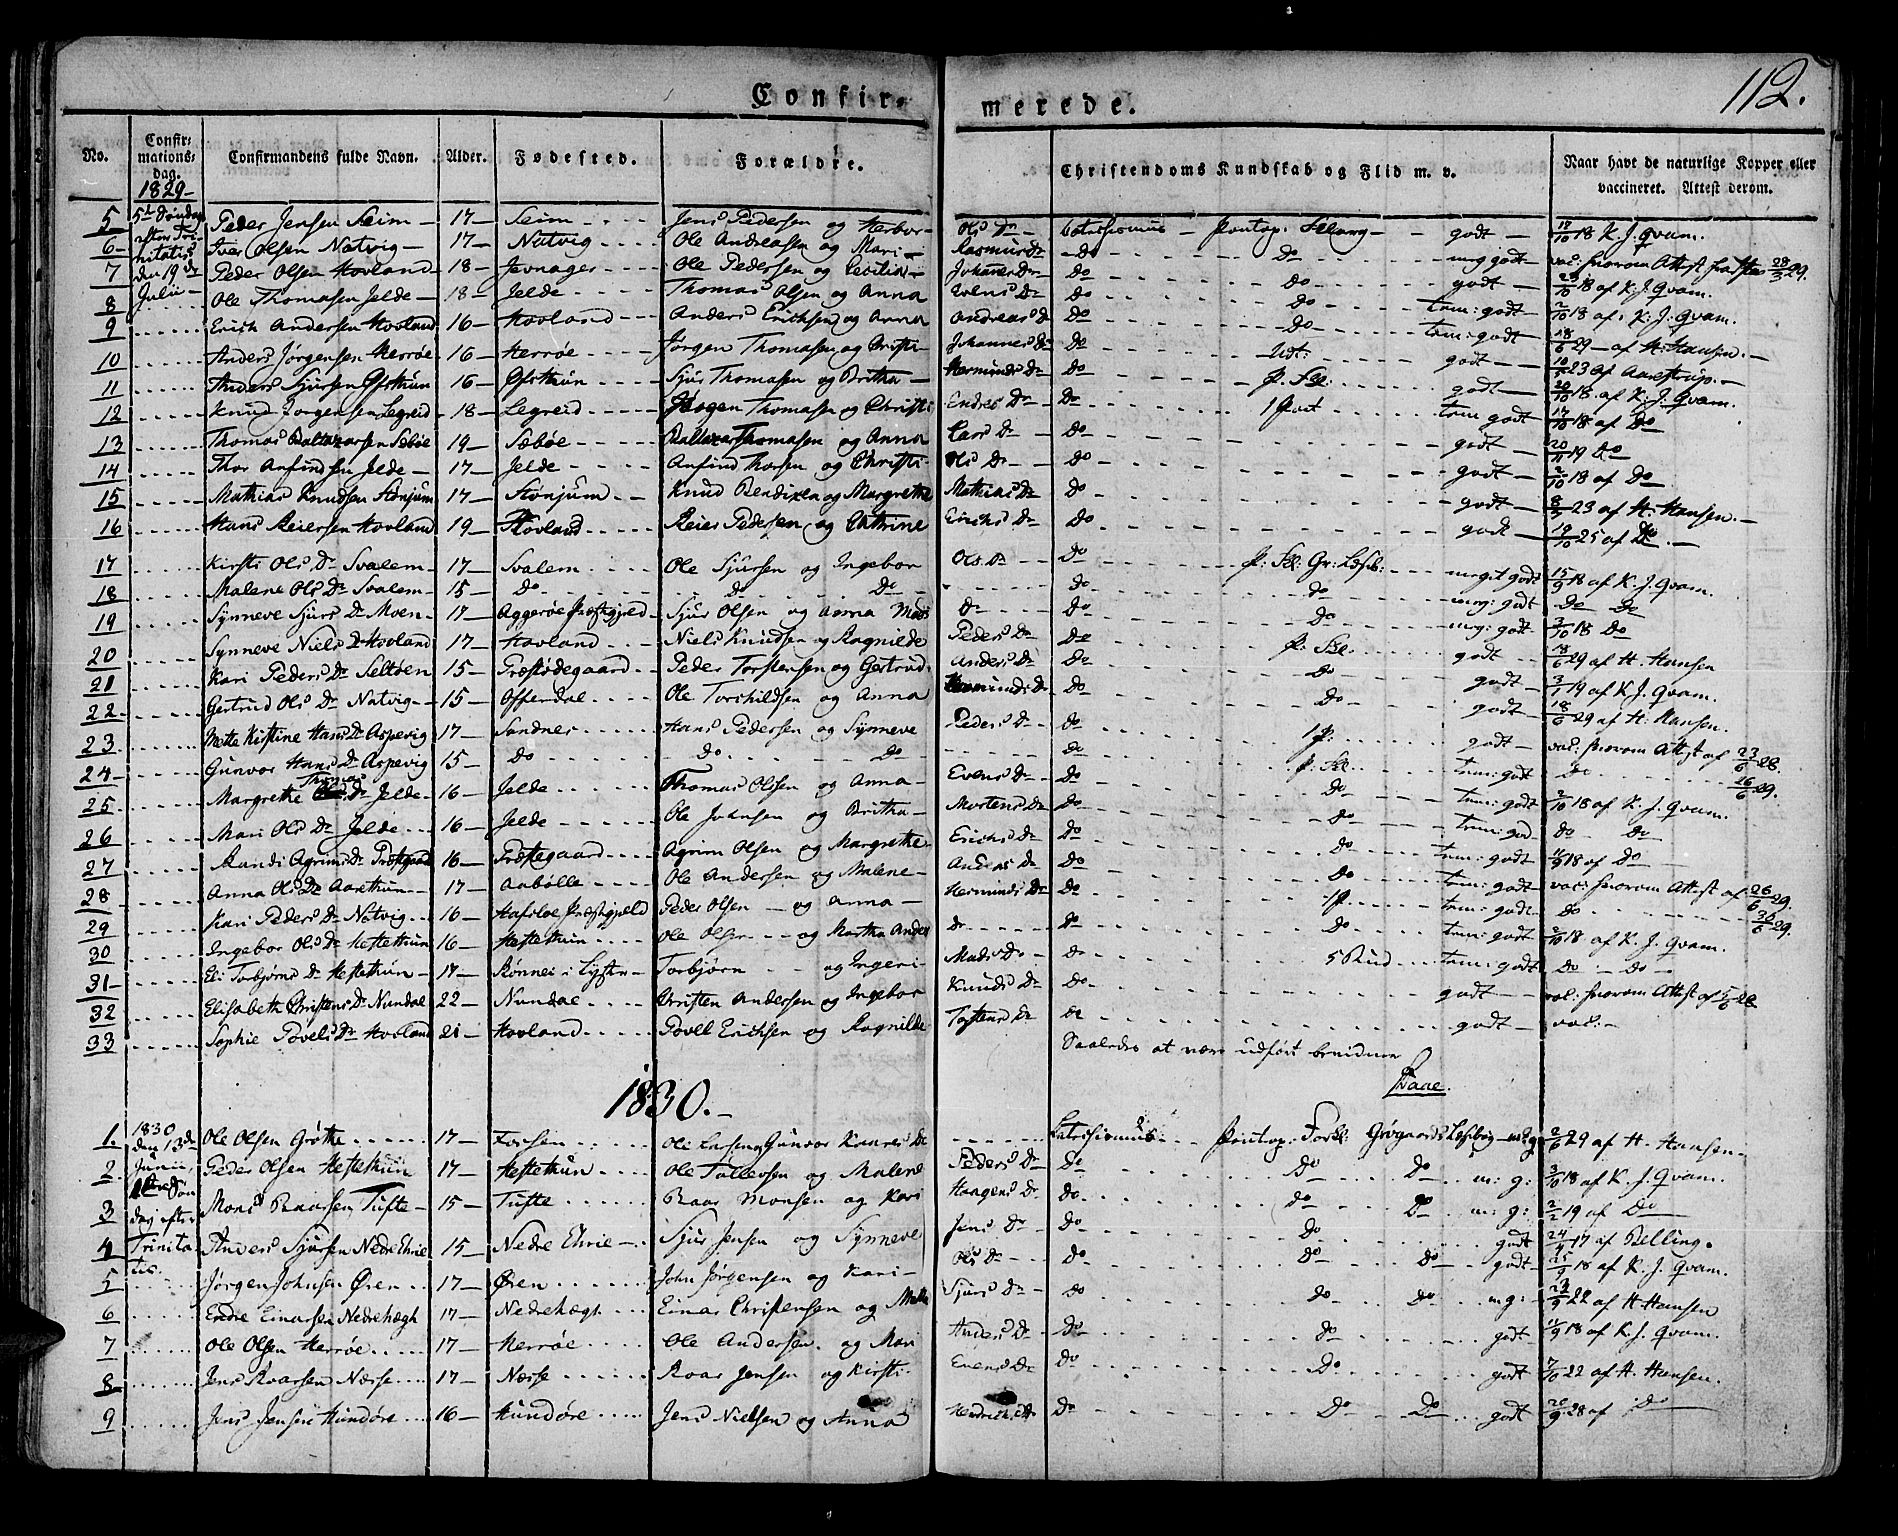 112.
Confirmerede.
No. Confirmationsdag. Confirmandens fulde Navn. Alder. Fødested. Forældre. Christendoms Kundskab og Flid m. v. Naar havt de naturlige Kopper eller vaccineret. Attest derom.
1829
5te Søndag efter Trinitatis den 19de Julii
5 Peder Jensen Seim 17 Seim Jens Pedersen og Herbor Ols Dr Catechismus Pontop: godt 18 K. J. Qvam.
6 Iver Olsen Natvig 17 Natvig Ole Andreasen og Mari Rasmus Dr Do Do meg godt vac: hvorom Attest
7 Peder Olsen Hovland 18 Jevnager Ole Pedersen og Johannes Dr Do Do godt 18 af K. J. Qvam.
8 Ole Thomasen Jelde 18 Jelde Thomas Olsen og Anna Do Do tem: godt 2/10 18 af K. J. Qvam.
9 Erich Andersen Hovland 16 Hovland Anders Erichsen og Anna Andreas D Do Do tem: godt 18/6 29 af H. Hansen.
10 Anders Jørgensen Herrøe 16 Herrøe Jørgen Thomasen og Christi Johannes Dr Do Udt: godt 23 af Aarestrup.
11 Anders Sjursen Ofsthun 16 Ofsthun Sjur Thomasen og Britha Hermunds Dr Do P. godt 20/10 18 af K. J. Qvam.
12 Knud Jørgensen Legreid 18 Legreid Thomasen og Christi Endres Dr Do 1 Part tem godt 17/10 18 af Do
13 Thomas Baltzarsen Sæbøe 19 Sæbøe Baltzar Thomasen og Anna Lars Dr Do godt 19 Do
14 Thor Anfindsen Jelde 17 Jelde Anfind Thorsen og Christi Ols Dr Do godt 2/10 18 af Do
15 Mathias Knudsen Stønjum 17 Stønjum Knud Bendixen og Margrethe Mathias Dr Do godt 23 af H. Hansen.
16 Hans Reiersen Hovland 19 Hovland Reier Pedersen og Cathrine Erichs Dr Do godt 19/10 25 af Do
17 Kirsti Ols Dr Svalem 17 Svalem Ole Sjursen og Ingebor Ols Dr Do P: Gr: Læseb: meget godt 15/9 18 af K. J. Qvam.
18 Malene Ols Dr Svalem 15 Do Do Do Do Do meg: godt Do Do
19 Synneve Sjurs Dr Moen 17 Aggerøe Præstgjeld Sjur Olsen og Anna Mads Dr Do Do meg: godt 3/10 18 Do
20 Synneve Niels Dr Hovland 17 Hovland Niels Knudsen og Ragnilde Peders Dr Do P. godt 18/6 29 af H. Hansen
21 Kari Peders Dr Seltøen 15 Præstødegaard Peder Torstensen og Gertrud Anders Dr Do Do godt 19 af K. J. Qvam.
22 Gertrud Ols Dr Natvig 15 Offerdal Ole Torchildsen og Anna Hermunds Dr Do Do godt 18/6 29 af H. Hansen.
23 Mette Kirstine Hans Dr Aspevig 17 Sandnes Hans Pedersen og Synneve Peders Dr Do 1 P. godt vac: hvorom Attest af 23/6 28.
24 Gunvor Hans Dr Aspevig 15 Do Do Do Do P. tem: godt Do 16/6 29.
25 Margrethe Thomas Dr Jelde 16 Jelde Thomas Olsen og Anna Evens Dr Do Do tem: godt 2/10 18 af K. J. Qvam.
26 Mari Ols Dr Jelde 16 Jelde Ole Johnsen og Britha Mortens Dr Do tem: god Do Do
27 Randi Agrims Dr Præstgaard 16 Præstegaard Agrim Olsen og Margrethe Erichs Dr Do Do tem: godt 18 af Do
28 Anna Ols Dr Aarethun 17 Aabølle Ole Andersen og Malene Anders Dr Do Do tem: godt vac: hvorom Attest af 26/6 29.
29 Kari Peders Dr Natvig 16 Hafsloe Præstgjeld Peder Olsen og Anna Hermunds Dr Do 1 P tem: godt Do 29.
30 Ingebor Ols Dr Hestethun 16 Hestethun Ole Olsen og Martha Anders Dr Do Do tem: godt 2/10 18 af K. J. Qvam.
31 Eli Torbjørns Dr Hestethun 17 Rønnei i Lyster Torbjørn og Ingeri Mads Do Do 5 Bud tem: godt Do Do
32 Elisabeth Christens Dr Nundal 22 Nundal Christen Andersen og Ingebor Knuds Dr Do godt vac: hvorom Attest af
33 Sophie Povels Dr Hovland 21 Hovland Povel Erichsen og Ragnilde Do godt vac:
Saaledes at være udført bevidner
Daae.
1830.
1830 den 13de Junii, 1ste Søndag efter Trinitatis.
1. Ole Olsen Grøthe 17 Forsen Ole Larsen, Gunvor Kaares Dr Catechismus Pontop: Grøgaards Læsebog 29 af H. Hansen
2. Peder Olsen Hestethun 17 Hestethun Ole Tollevsen og Malene Peders Dr Do Do Do m: g: 3/10 18 af K. J. Qvam.
3 Mons Baarsen Tufte 15 Tufte Baar Monsen og Kari Haagens Dr Do Do Do m: g: 2/2 19 af Do
4 Anders Sjursen Nedre Ehrie 15 Nedre Ehrie Sjur Jensen og Synneve Jens Dr Do Do godt 24/4 17 af Belling.
5 Jørgen Johnsen Øren 17 Øren John Jørgensen og Kari Ols Dr Do Do Do godt 18 af K. J. Qvam.
6 Endre Einarsen Nedrehægh 17 Nedrehægh Einar Christensen og Sjurs Dr Do Do Do mg: 22 af H Hansen
7 Ole Olsen Herrøe 17 Herrøe Ole Andersen og Mari Anders Dr Do Do godt 18 af K. J. Qvam.
8 Jens Roarsen Næsse 17 Næsse Roar Jensen og Kirsti Evens Dr Do Do godt 7/10 22 af H. Hansen.
9 Jens Jensen Hundøre 16 Hundøre Jens Nielsen og Anna Do Do Do godt 28 af Do